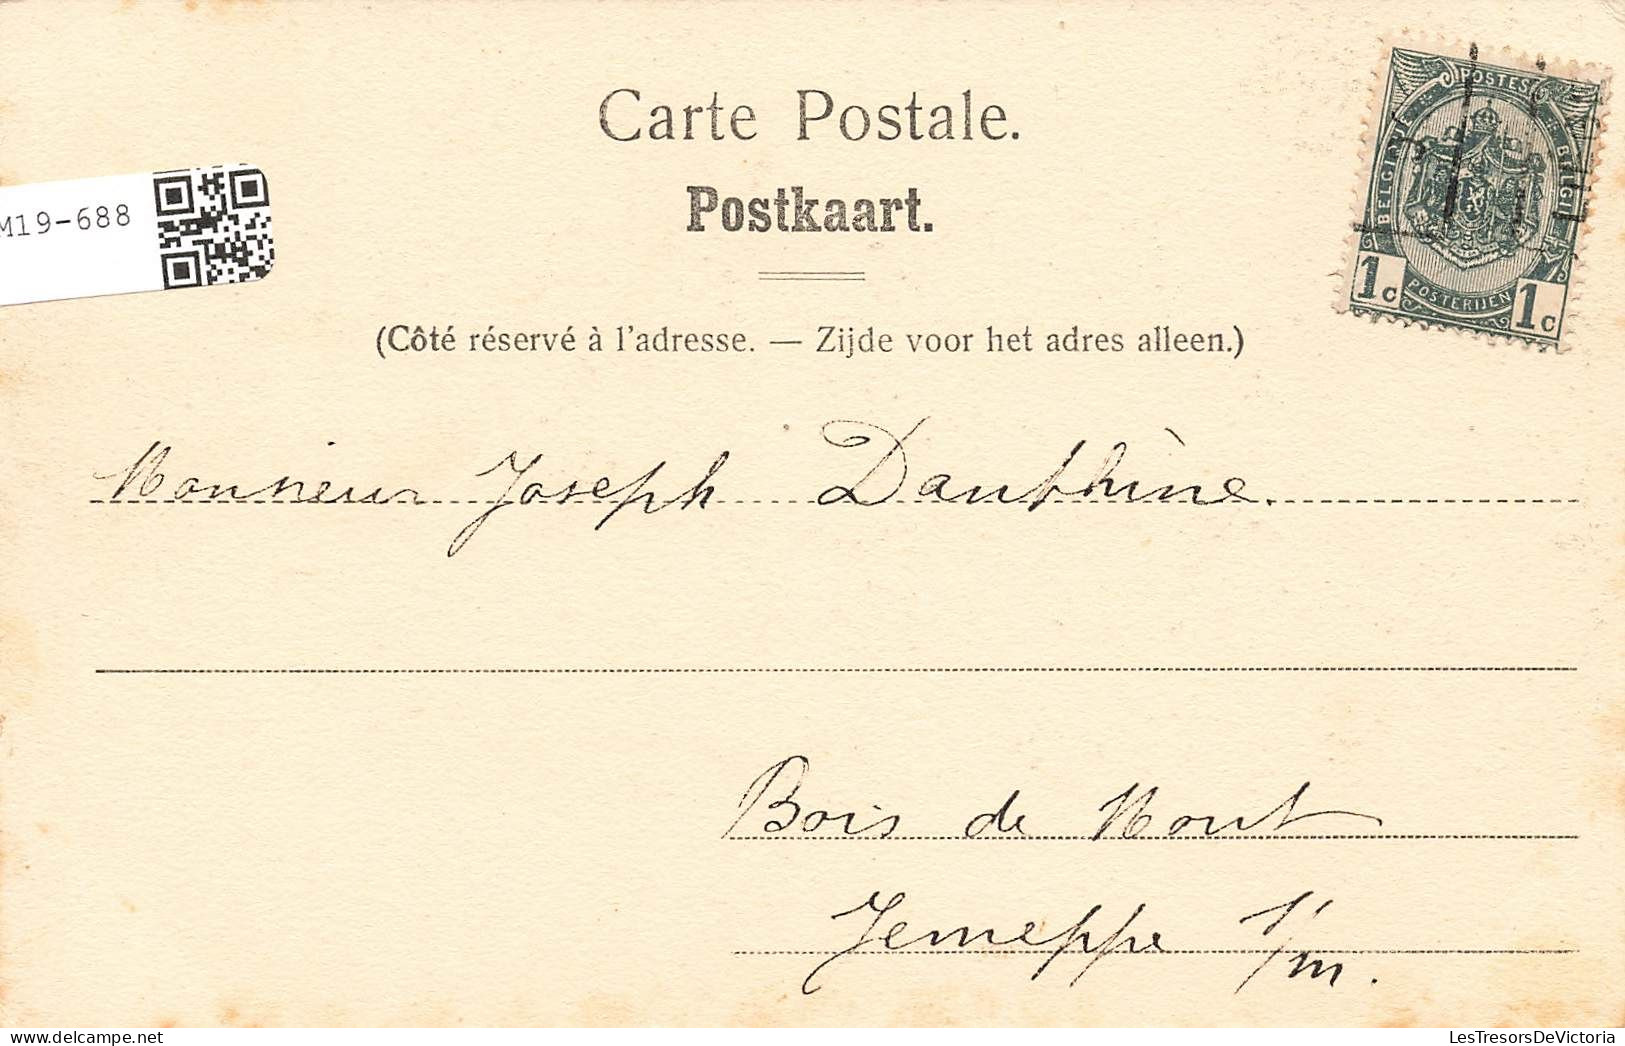 Carte Postale.
Postkaart.
M19-688
POSTES
BELGIQUE
BELGIË
1c
POSTERIJEN
1c
(Côté réservé à l'adresse. — Zijde voor het adres alleen.)
Monsieur Joseph Dauthine.
Bois de Mont
Jemeppe s/m.
LesTresorsDeVictoria